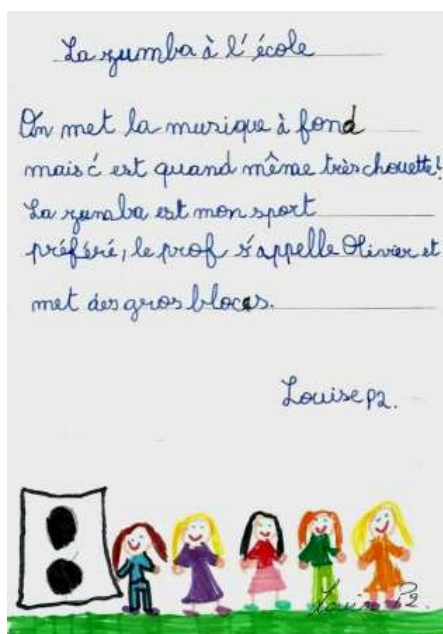 La zumba à l'école
On met la musique à fond
mais c'est quand même très chouette!
La zumba est mon sport
préféré, le prof s'appelle Olivier et
met des gros blocs.
Louise P2.
Louise P2.